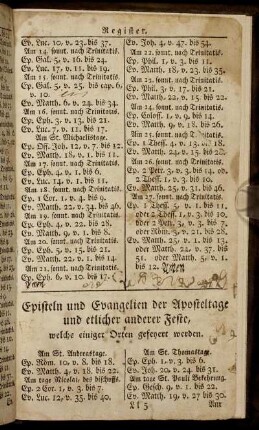 Register.
Ev. Luc. 10. v. 23. bis 37.
Am 14. sonnt. nach Trinitatis.
Ep. Gal. 5, v. 16. bis 24.
Ev. Luc. 17, v. 11. bis 19.
Am 15. sonnt. nach Trinitatis.
Ep. Gal. 5, v. 25. bis cap. 6,
v. 10.
Ev. Matth. 6, v. 24. bis 34.
Am 16. sonnt. nach Trinitatis.
Ep. Eph. 3, v. 13. bis 21.
Ev. Luc. 7, v. 11. bis 17.
Am St. Michaelistage.
Ep. Off. Joh. 12, v. 7. bis 12.
Ev. Matth. 18, v. 1. bis 11.
Am 17. sonnt. nach Trinitatis.
Ep. Eph. 4, v. 1. bis 6.
Ev. Luc. 14, v. 1. bis 11.
Am 18. sonnt. nach Trinitatis.
Ep. 1 Cor. 1, v. 4. bis 9.
Ev. Matth. 22, v. 34. bis 46.
Am 19. sonnt. nach Trinitatis.
Ep. Eph. 4, v. 22. bis 28.
Ev. Matth. 9, v. 1. bis 8.
Am 20. sonnt. nach Trinitatis.
Ep. Eph. 5, v. 15. bis 21.
Ev. Matth. 22, v. 1. bis 14.
Am 21. sonnt. nach Trinitatis.
Ep. Eph. 6, v. 10. bis 17.
Ev. Joh. 4, v. 47. bis 54.
Am 22. sonnt. nach Trinitatis.
Ep. Phil. 1, v. 3. bis 11.
Ev. Matth. 18, v. 23. bis 35.
Am 23. sonnt. nach Trinitatis.
Ep. Phil. 3, v. 17. bis 21.
Ev. Matth. 22, v. 15. bis 22.
Am 24. sonnt. nach Trinitatis.
Ep. Coloss. 1, v. 9. bis 14.
Ev. Matth. 9, v. 18. bis 26.
Am 25. sonnt. nach Trinitatis.
Ep. 1 Thess. 4, v. 13. 18.
Ev. Matth. 24, v. 15. bis 28.
Am 26. sonnt. nach Trinitatis.
Ep. 2 Petr. 3, v. 3. bis 14. od.
2 Thess. 1, v. 3. bis 10.
Ev. Matth. 25, v. 31. bis 46.
Am 27. sonnt. nach Trinitatis.
Ep. 1 Thess. 5, v. 1. bis
oder 2 Thess. 1, v. 3. bis 10.
oder 2 Petr. 3, v. 3. bis 7.
Ev. Matth. 25, v. 1. bis 13.
oder Matth. 24, v. 37. bis
51. oder Matth. 5, v. 1.
bis 12.
Episteln und Evangelien der Aposteltage
und etlicher anderer Feste,
welche einiger Orten gefeyert werden.
Am St. Andreastage.
Ep. Röm. 10, v. 8. bis 18.
Ev. Matth. 4, v. 18. bis 22.
Am tage Nicolai, des bischoffs.
Ep. 2 Cor. 1, v. 3. bis 7.
Ev. Luc. 12, v. 35. bis 40.
Am St. Thomastage.
Ep. Eph. 1, v. 3. bis 6.
Ev. Joh. 20, v. 24. bis 31.
Am tage St. Pauli Bekehrung.
Ep. Gesch. 9, v. 1. bis 22.
Ev. Matth. 19, v. 27. bis 30.
Am